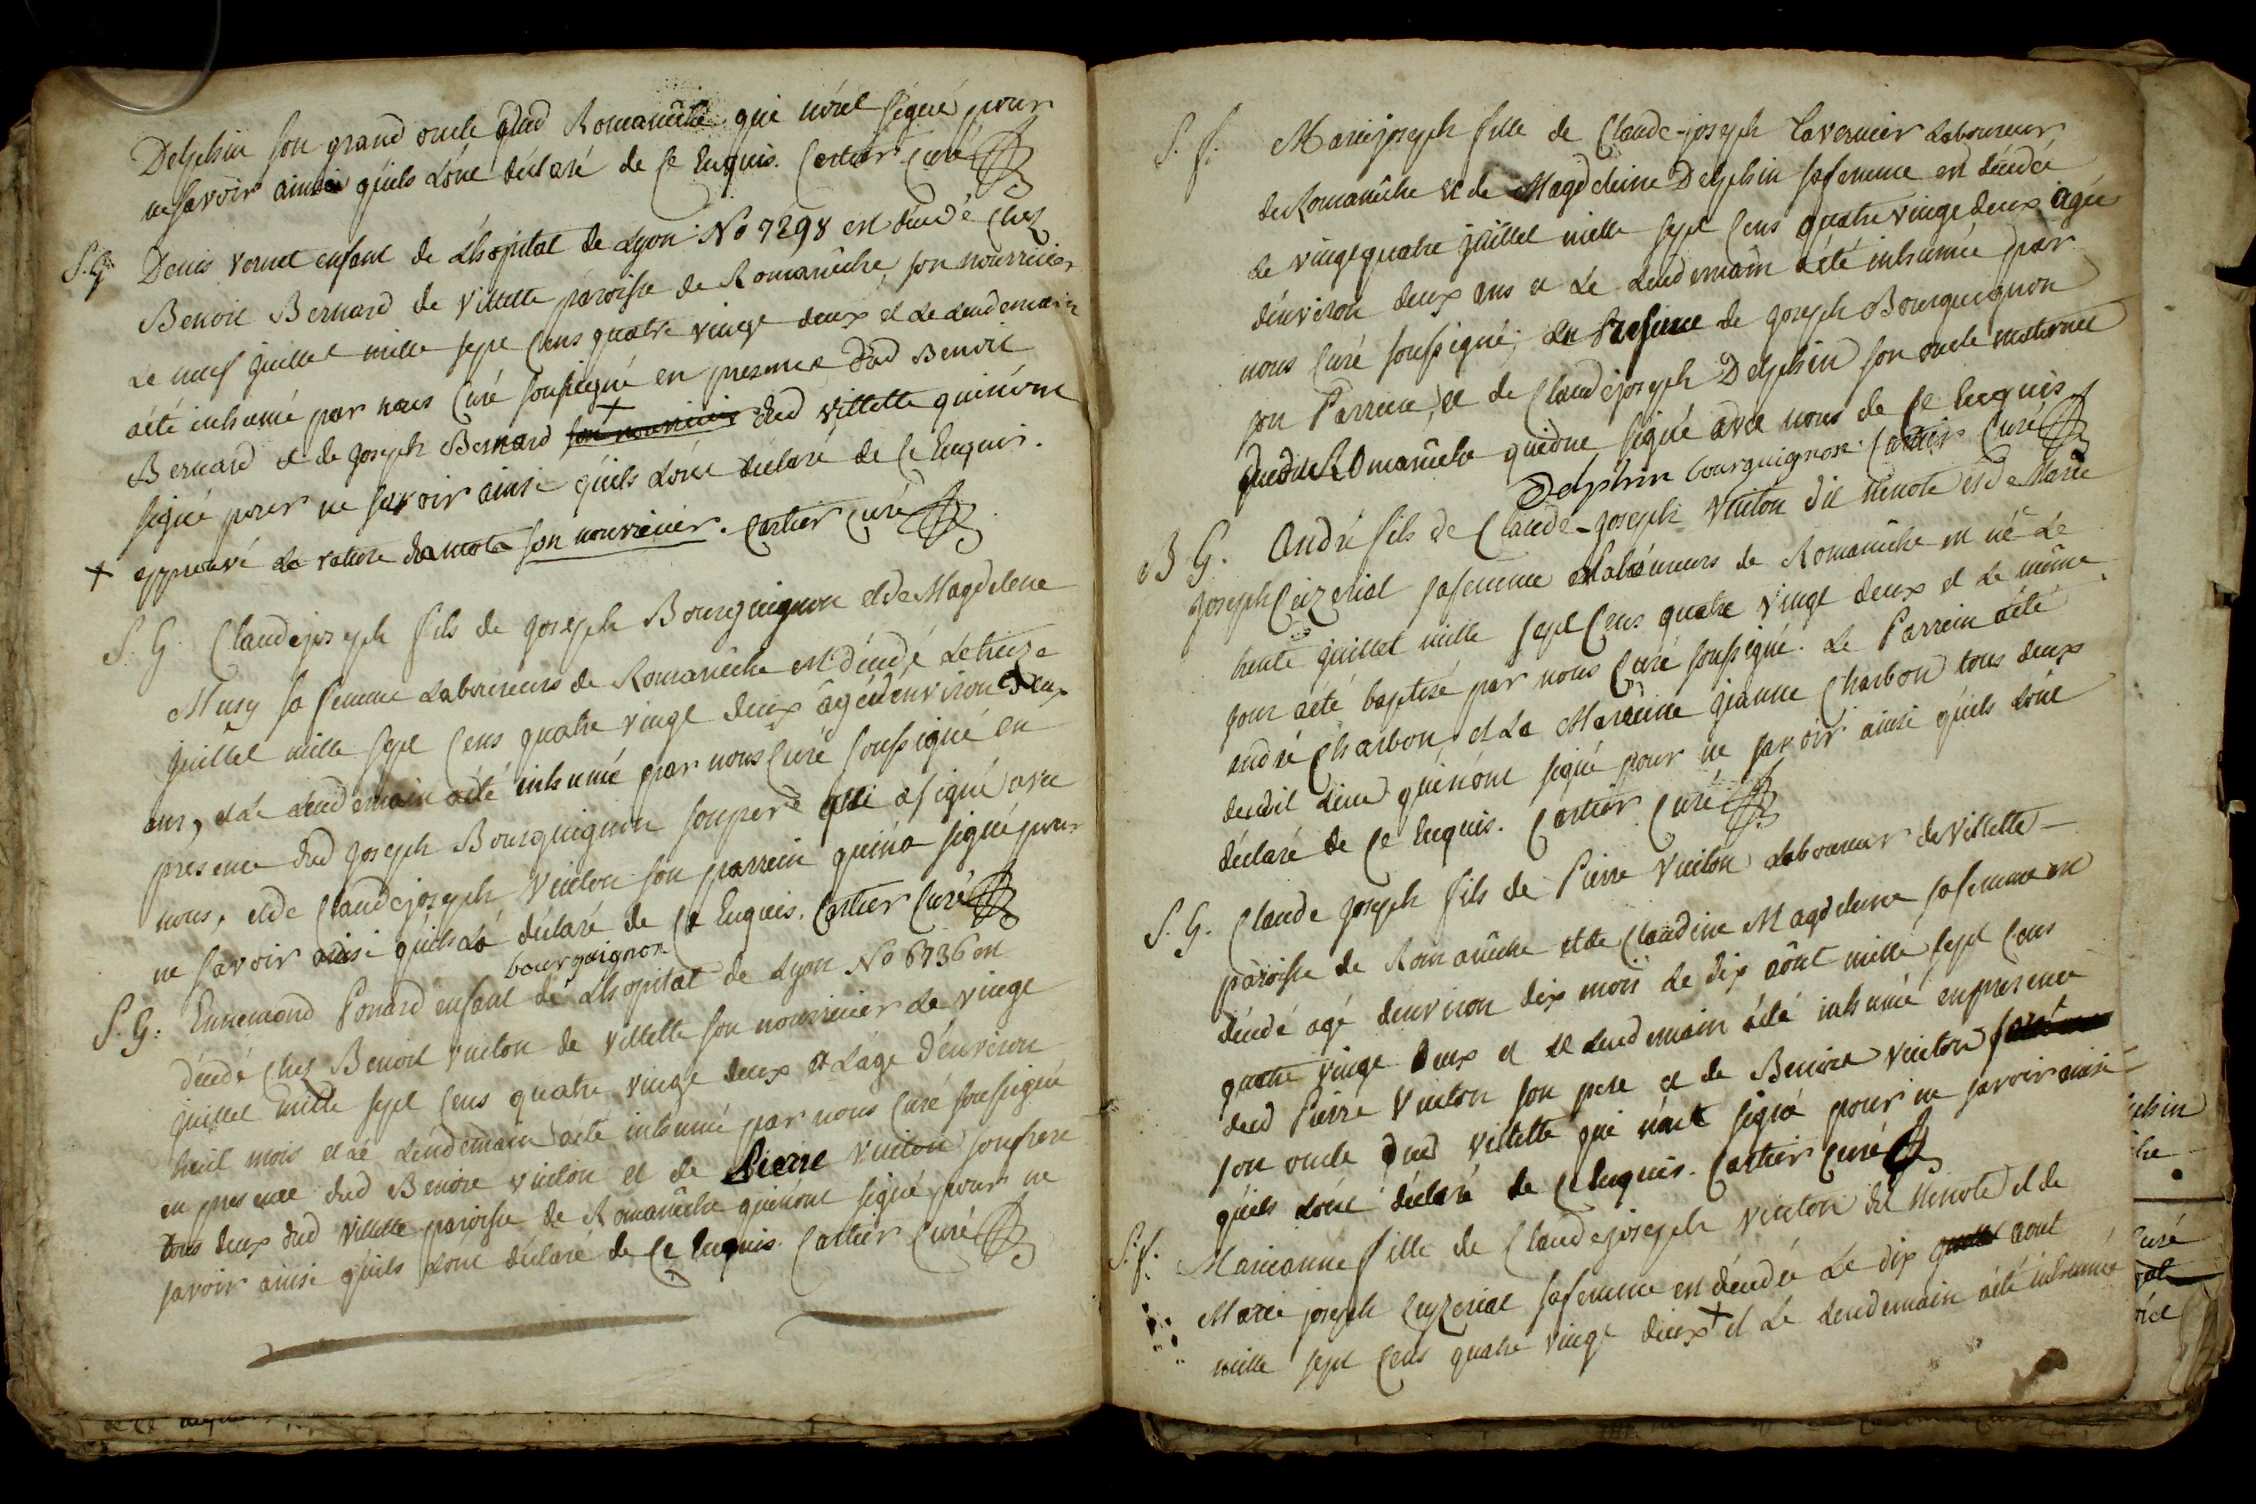 Delphin son grand oncle dud Romanêche qui n'ont signé pour
ne savoir ainsi qu'ils l'ont déclaré de ce Enquis. Cartier Curé
S. G. Denis vernet enfant de Lhopital de Lyon No 7298 est décédé chez
Benoit Bernard de Villette paroisse de Romanêche son nourricier
Le neuf juillet mille sept Cens quatre vingt deux et le Lendemain
a été inhumé par nous Curé soussigné en presence dud Benoit
Bernard et de joseph Bernard son nourricier dud Villette qui n'ont
signé pour ne savoir ainsi qu'ils l'ont déclaré de ce Enquis.
+ approuvé la rature du mots son nourricier. Cartier Curé
S. G. Claudejoseph fils de joseph Bourguignon et de Magdelene
Musy sa femme Laboureurs de Romanêche est décédé Le treize
juillet mille sept Cens quatre vingt deux agé d'environ deux
ans, et Le Lendemain a été inhumé par nous Curé soussigné en
présence dud joseph Bourguignon son pere qui a signé avec
nous, et de Claudejoseph Vuiton son parrein qui n'a signé pour
ne savoir ainsi qu'il L'a déclaré de Ce Enquis. Cartier Curé
bourguignon
S. G: Ennemond Ponard enfant de Lhopital de Lyon No 6736 est
décédé Chez Benoit Vuiton de Villette son nourricier Le vingt
juillet mille sept Cens quatre vingt deux et L'age d'environ
huit mois et Le Lendemain a été inhumé par nous Curé soussigné
en presence dud Benoit Vuiton et de Pierre Vuiton son frere
tous deux dud Villette paroisse de Romanêche qui n'ont signé pour ne
savoir ainsi qu'ils L'ont déclaré de Ce Enquis. Cartier Curé
S. f. Mariejoseph fille de Claude-joseph Tavernier Laboureur
de Romanêche et de Magdeleine Delphin sa femme est décédée
Le vingt quatre juillet mille sept Cens quatre vingt deux agée
d'environ deux ans et Le Lendemain a été inhumée par
nous Curé soussigné; En Presence de joseph Bourguignon
son Parrein, et de Claudejoseph Delphin son oncle maternel
dud Romanêche qui ont signé avec nous de ce Enquis
Delphin bourguignon. Cartier Curé
B G. André fils de Claude-joseph Vuiton dit Menote et de Marie
joseph Cuizeriat sa femme Laboureurs de Romanêche est né Le
trente juillet mille sept Cens quatre vingt deux et Le même
jour a été baptisé par nous Curé soussigné. Le Parrein a été
andré Charbon, et La Mareine jeanne Charbon tous deux
dudit Lieu qui n'ont signé pour ne savoir ainsi qu'ils L'ont
déclaré de Ce Enquis. Cartier Curé
S. G. Claude joseph fils de Pierre Vuiton Laboureur de Villette
paroisse de Romanêche et de Claudine Magdelene sa femme est
décédé agé d'environ dix mois Le dix aôut mille sept Cens
quatre vingt deux et Le Lendemain a été inhumé en presence
dud Pierre Vuiton son pere et de Benoit Vuiton
son oncle dud Villette qui n'ont signé pour ne savoir ainsi
qu'ils L'ont déclaré de ce Enquis. Cartier Curé
S. f. Marieanne fille de Claudejoseph Vuiton dit Menote et de
Marie joseph Cuizeriat sa femme est décédée Le dix aout
mille sept Cens quatre vingt deux + et Le Lendemain a été inhumée